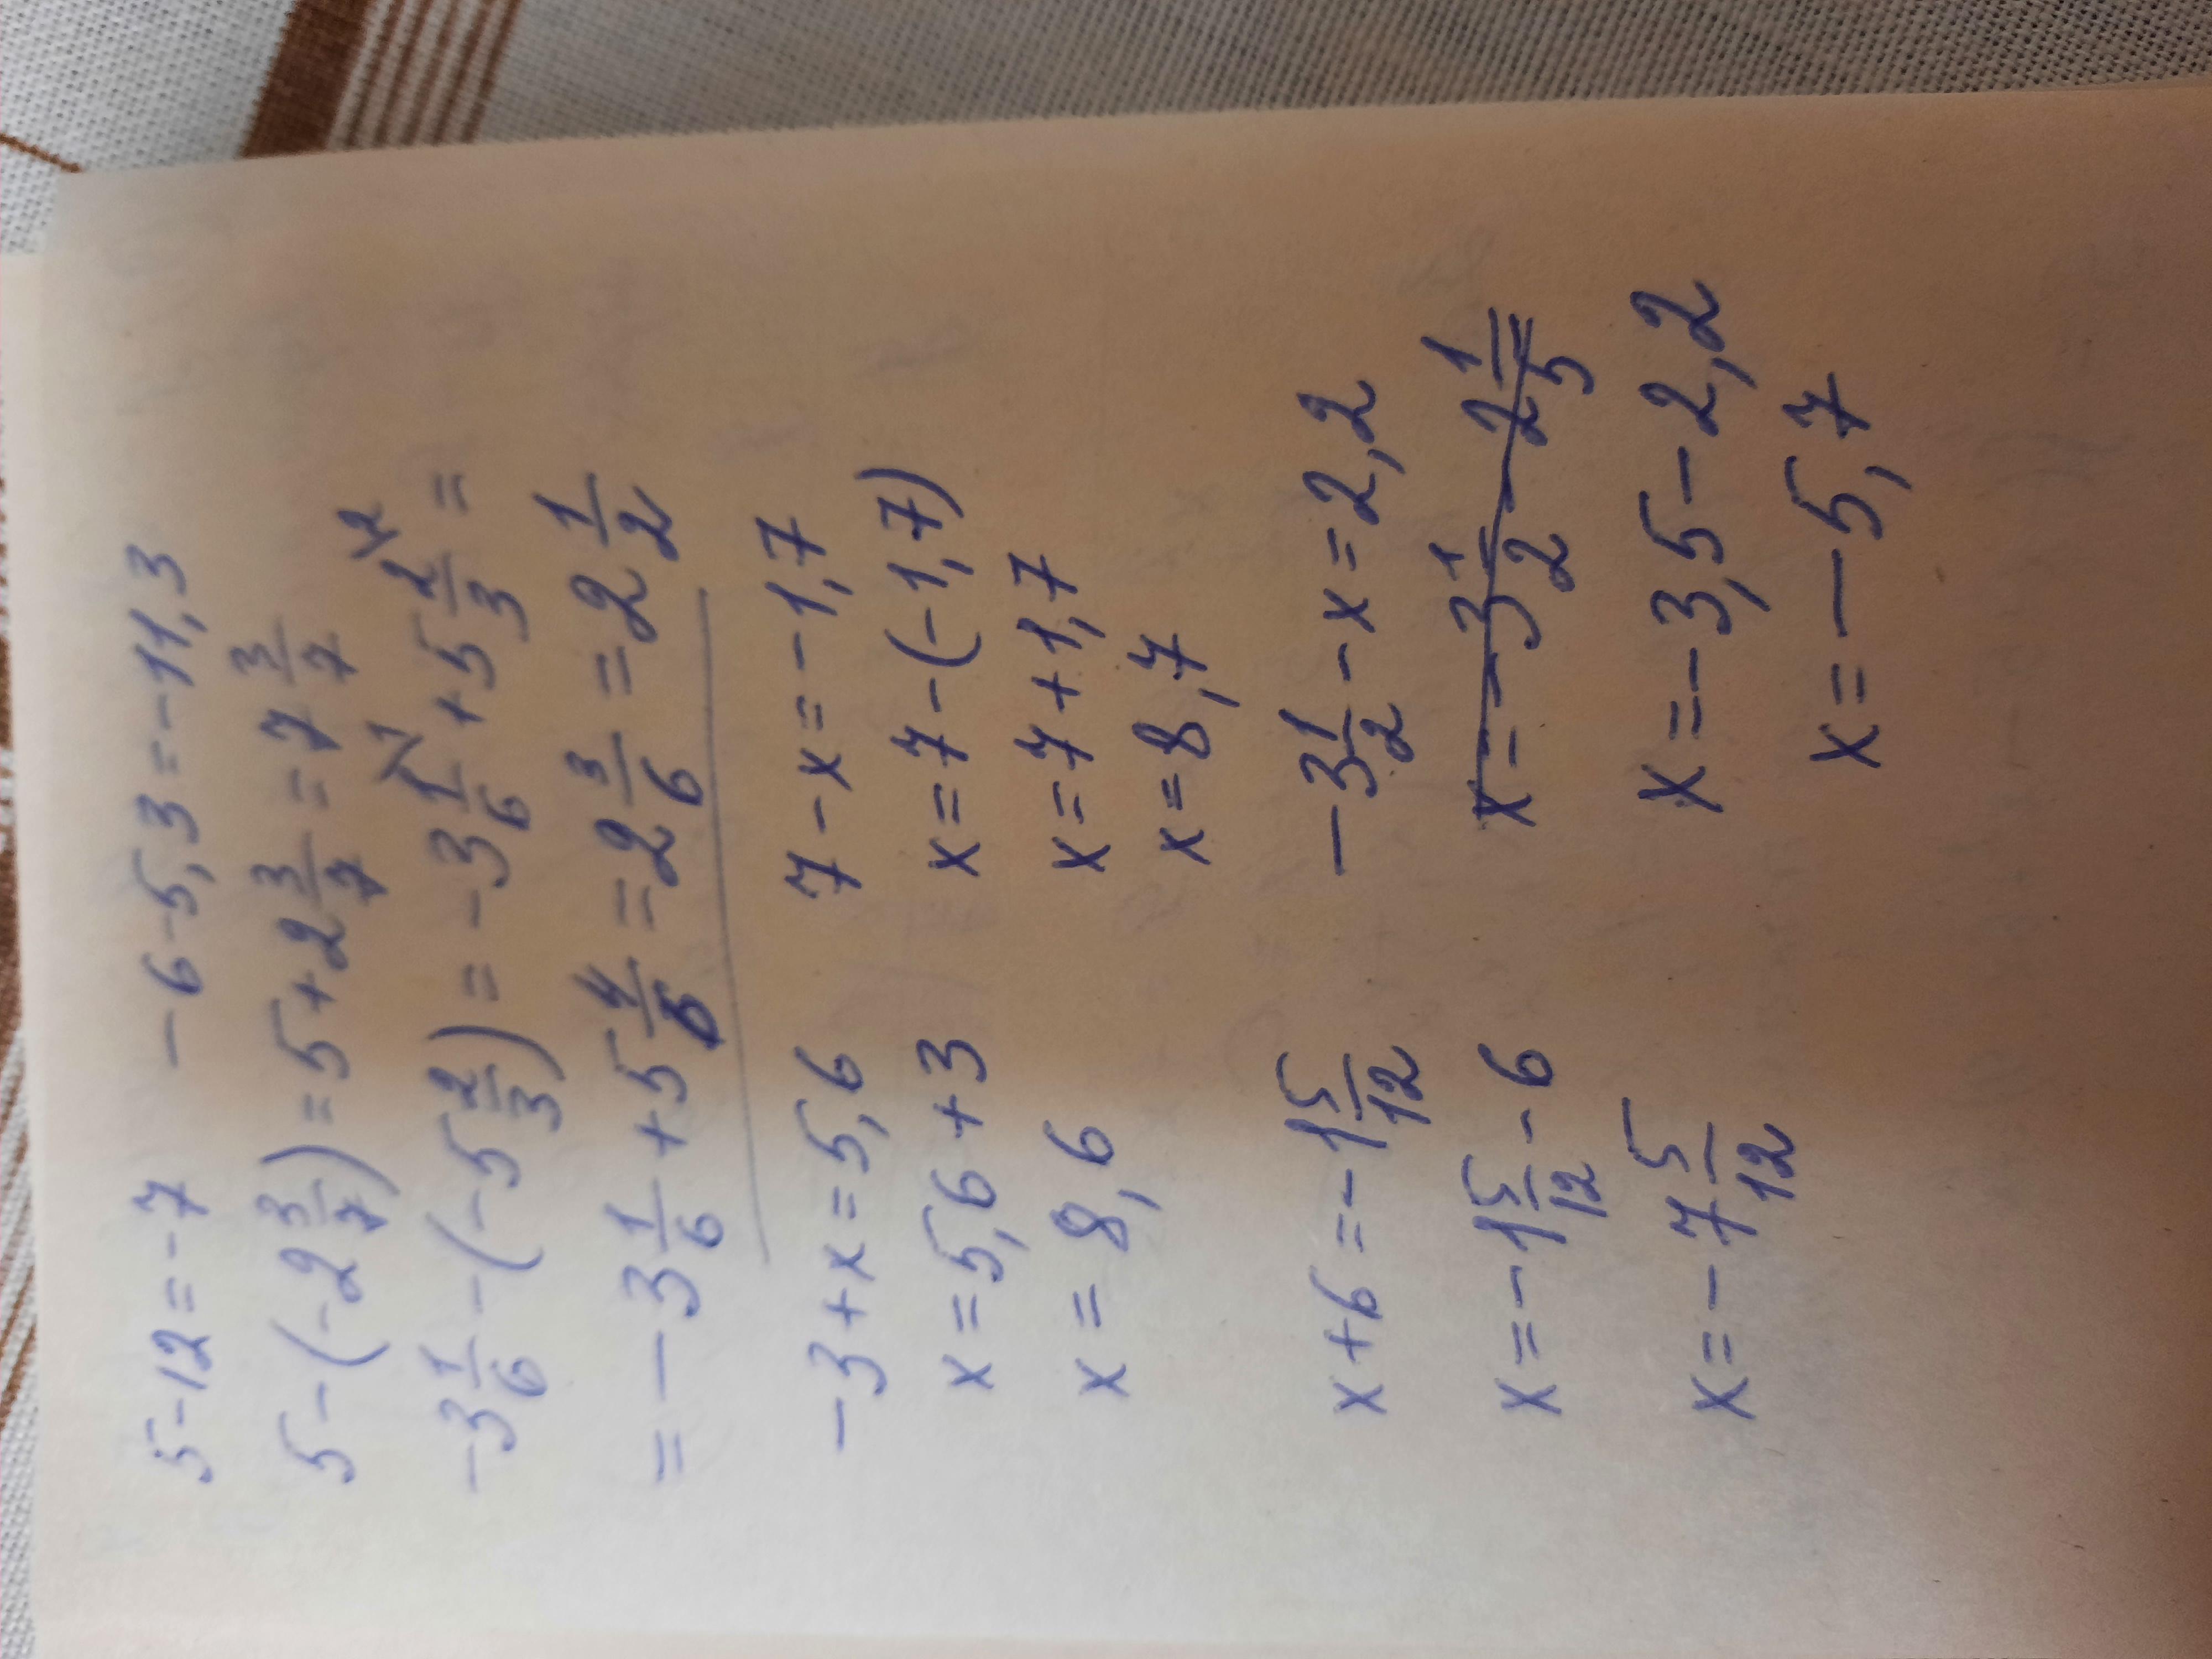 5-12=-7   -6-5,3=-11,3
5-(-2 3/7)=5+2 3/7=7 3/7
-3 1/6-(-5 2/3)=-3 1/6 \1 +5 2/3 \2 =
=-3 1/6+5 4/6=2 3/6=2 1/2
-3+x=5,6   7-x=-1,7
x=5,6+3   x=7-(-1,7)
x=8,6   x=7+1,7
x=8,7
x+6=-1 5/12   -3 1/2-x=2,2
x=-1 5/12-6   x=-3 1/2-2 1/5=
x=-7 5/12   x=-3,5-2,2
x=-5,7